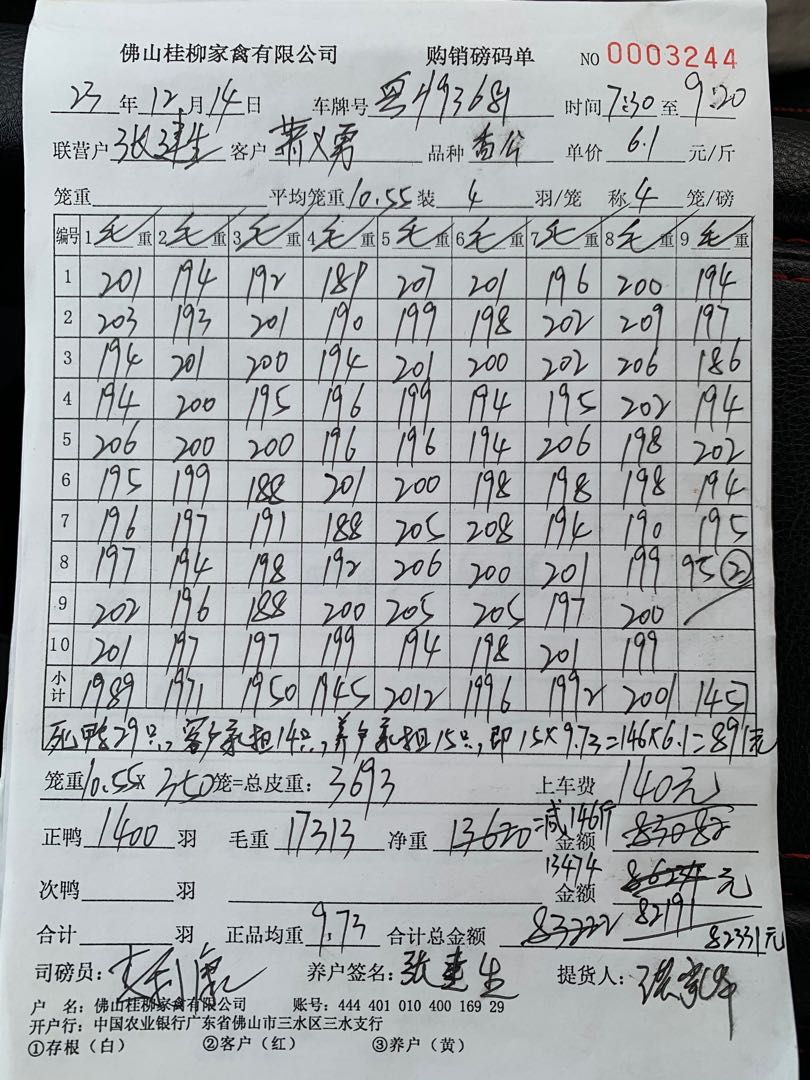 佛山桂柳家禽有限公司 购销磅码单 NO 0003244
23 年 12 月 14 日 车牌号 时间 7:30 至 9:20
联营户 张建生 客户 品种 香公 单价 6.1 元/斤
笼重 平均笼重 10.55 装 4 羽/笼 称 4 笼/磅
编号 1 毛 重 2 毛 重 3 毛 重 4 毛 重 5 毛 重 6 毛 重 7 毛 重 8 毛 重 9 毛 重
1 201 194 192 187 207 201 196 200 194
2 203 193 201 190 199 198 202 209 197
3 194 201 200 194 201 200 202 206 186
4 194 200 195 196 199 194 195 202 194
5 206 200 200 196 196 194 206 198 202
6 195 199 188 201 200 198 198 198 194
7 196 197 191 188 205 208 194 190 195
8 197 194 198 192 206 200 201 199 95 ②
9 202 196 188 200 205 205 197 200
10 201 197 197 199 194 198 201 199
小计 1989 1971 1950 1945 2012 1996 1992 2001 1457
死鸭29只,客户承担14只,养户承担15只,即15×9.73=146×6.1=891元
笼重 10.55× 350 笼=总皮重: 3693 上车费 140元
正鸭 1400 羽 毛重 17313 净重 13620 =减146斤 金额 83082
次鸭 羽 13474 金额 元
82191
合计 羽 正品均重 9.73 合计总金额 83222 82331元
司磅员: 养户签名: 张建生 提货人:
户 名: 佛山桂柳家禽有限公司 账号: 444 401 010 400 169 29
开户行: 中国农业银行广东省佛山市三水区三水支行
①存根(白) ②客户(红) ③养户(黄)